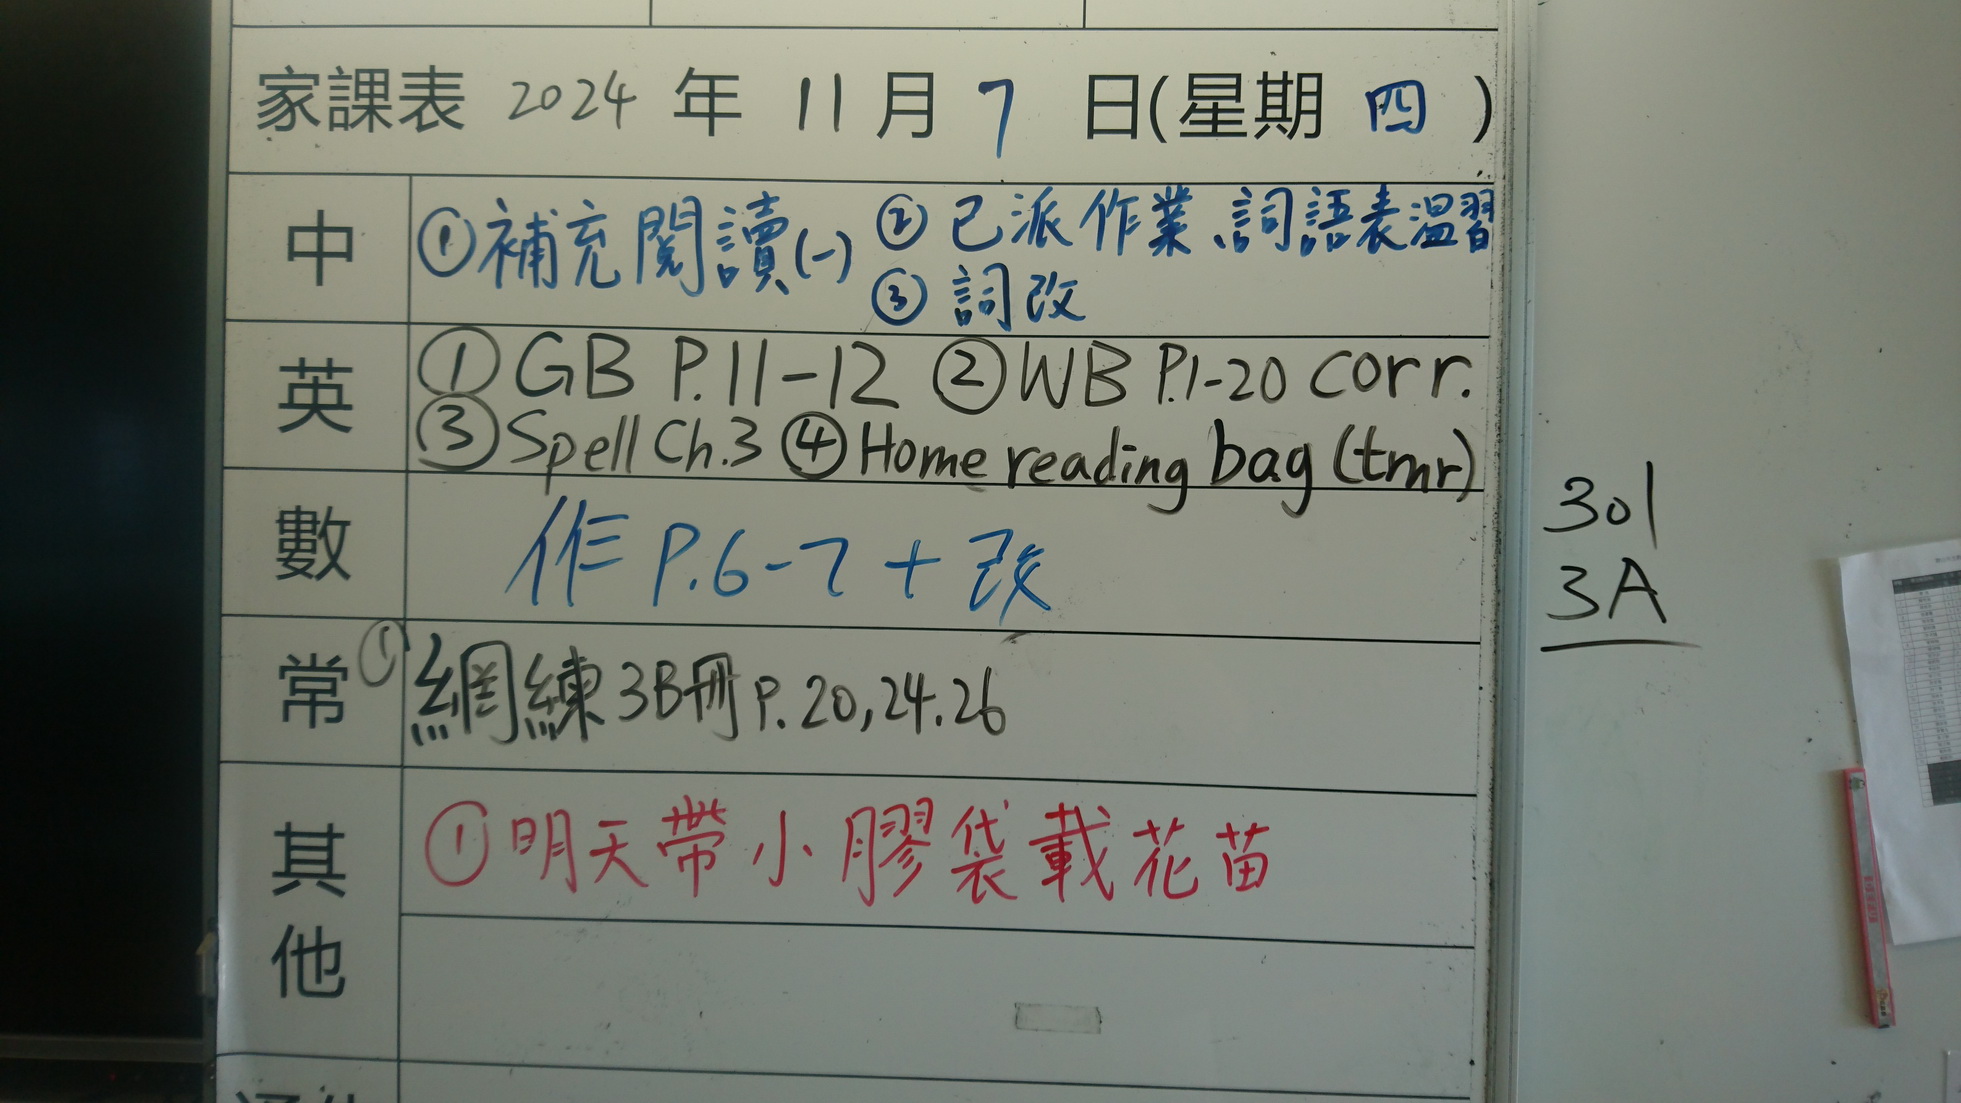 家課表 2024 年 11 月 7 日(星期 四 )
中
①補充閱讀(一) ②已派作業、詞語表溫習
③詞改
英
①GB P.11-12 ②WB P.1-20 corr.
③Spell Ch.3 ④Home reading bag (tmr)
數
作 P.6-7 + 改
常
①網練3B冊P.20,24.26
其他
①明天帶小膠袋載花苗
301
3A